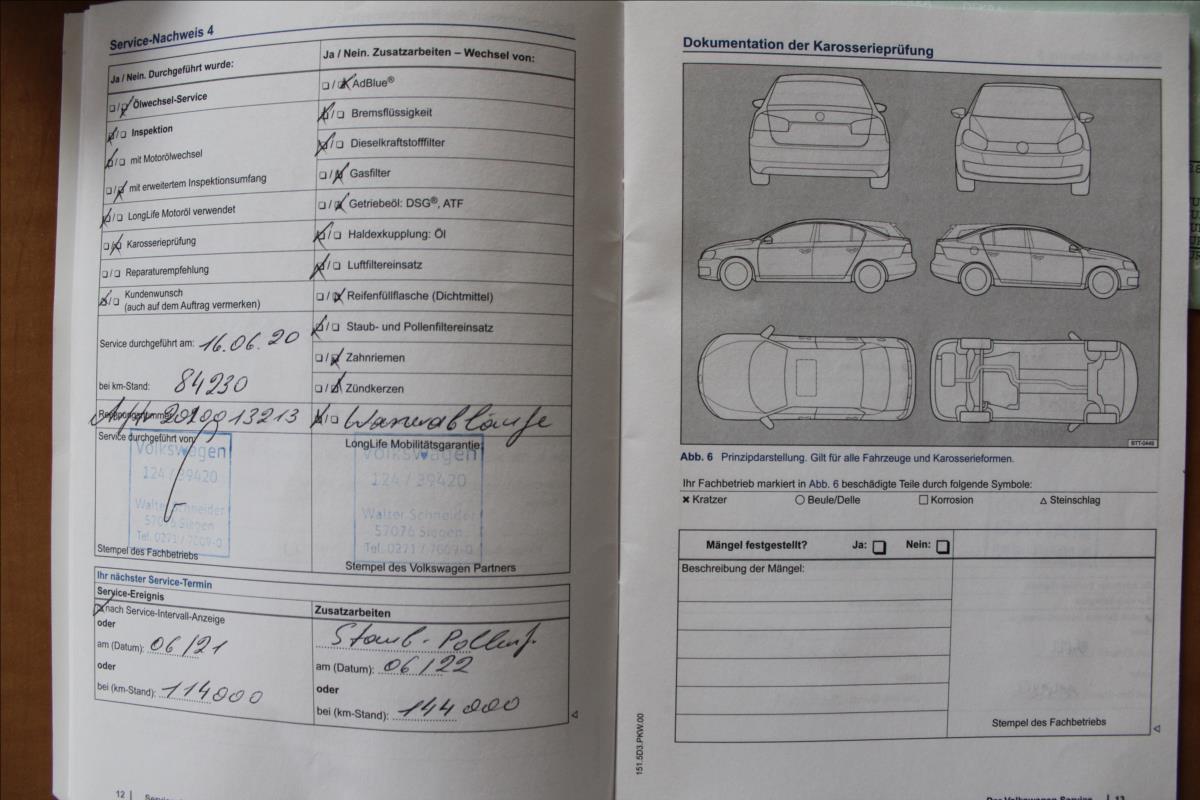 Service-Nachweis 4
Ja / Nein. Durchgeführt wurde:
❑/❑ Ölwechsel-Service
❑/❑ Inspektion
❑/❑ mit Motorölwechsel
❑/❑ mit erweitertem Inspektionsumfang
❑/❑ LongLife Motoröl verwendet
❑/❑ Karosserieprüfung
❑/❑ Reparaturempfehlung
❑/❑ Kundenwunsch
(auch auf dem Auftrag vermerken)
Service durchgeführt am: 16.06.20
bei km-Stand: 84230
Service durchgeführt von:
Volkswagen
124 / 39420
Walter Schneider
57076 Siegen
Tel. 0271 / 7009-0
Stempel des Fachbetriebs
Ja / Nein. Zusatzarbeiten – Wechsel von:
❑/❑ AdBlue®
❑/❑ Bremsflüssigkeit
❑/❑ Dieselkraftstofffilter
❑/❑ Gasfilter
❑/❑ Getriebeöl: DSG®, ATF
❑/❑ Haldexkupplung: Öl
❑/❑ Luftfiltereinsatz
❑/❑ Reifenfüllflasche (Dichtmittel)
❑/❑ Staub- und Pollenfiltereinsatz
❑/❑ Zahnriemen
❑/❑ Zündkerzen
❑/❑ Wasserabläufe
LongLife Mobilitätsgarantie:
Volkswagen
124 / 39420
Walter Schneider
57076 Siegen
Tel. 0271 / 7009-0
Stempel des Volkswagen Partners
Ihr nächster Service-Termin
Service-Ereignis
nach Service-Intervall-Anzeige
oder
am (Datum): 06/21
oder
bei (km-Stand): 114000
Zusatzarbeiten
Staub-Pollenf.
am (Datum): 06/22
oder
bei (km-Stand): 144000
12
Dokumentation der Karosserieprüfung
BTT-0449
Abb. 6 Prinzipdarstellung. Gilt für alle Fahrzeuge und Karosserieformen.
Ihr Fachbetrieb markiert in Abb. 6 beschädigte Teile durch folgende Symbole:
✖ Kratzer ○ Beule/Delle □ Korrosion △ Steinschlag
Mängel festgestellt? Ja: ❑ Nein: ❑
Beschreibung der Mängel:
Stempel des Fachbetriebs
151.5D3.PKW.00
Der Volkswagen Service | 13